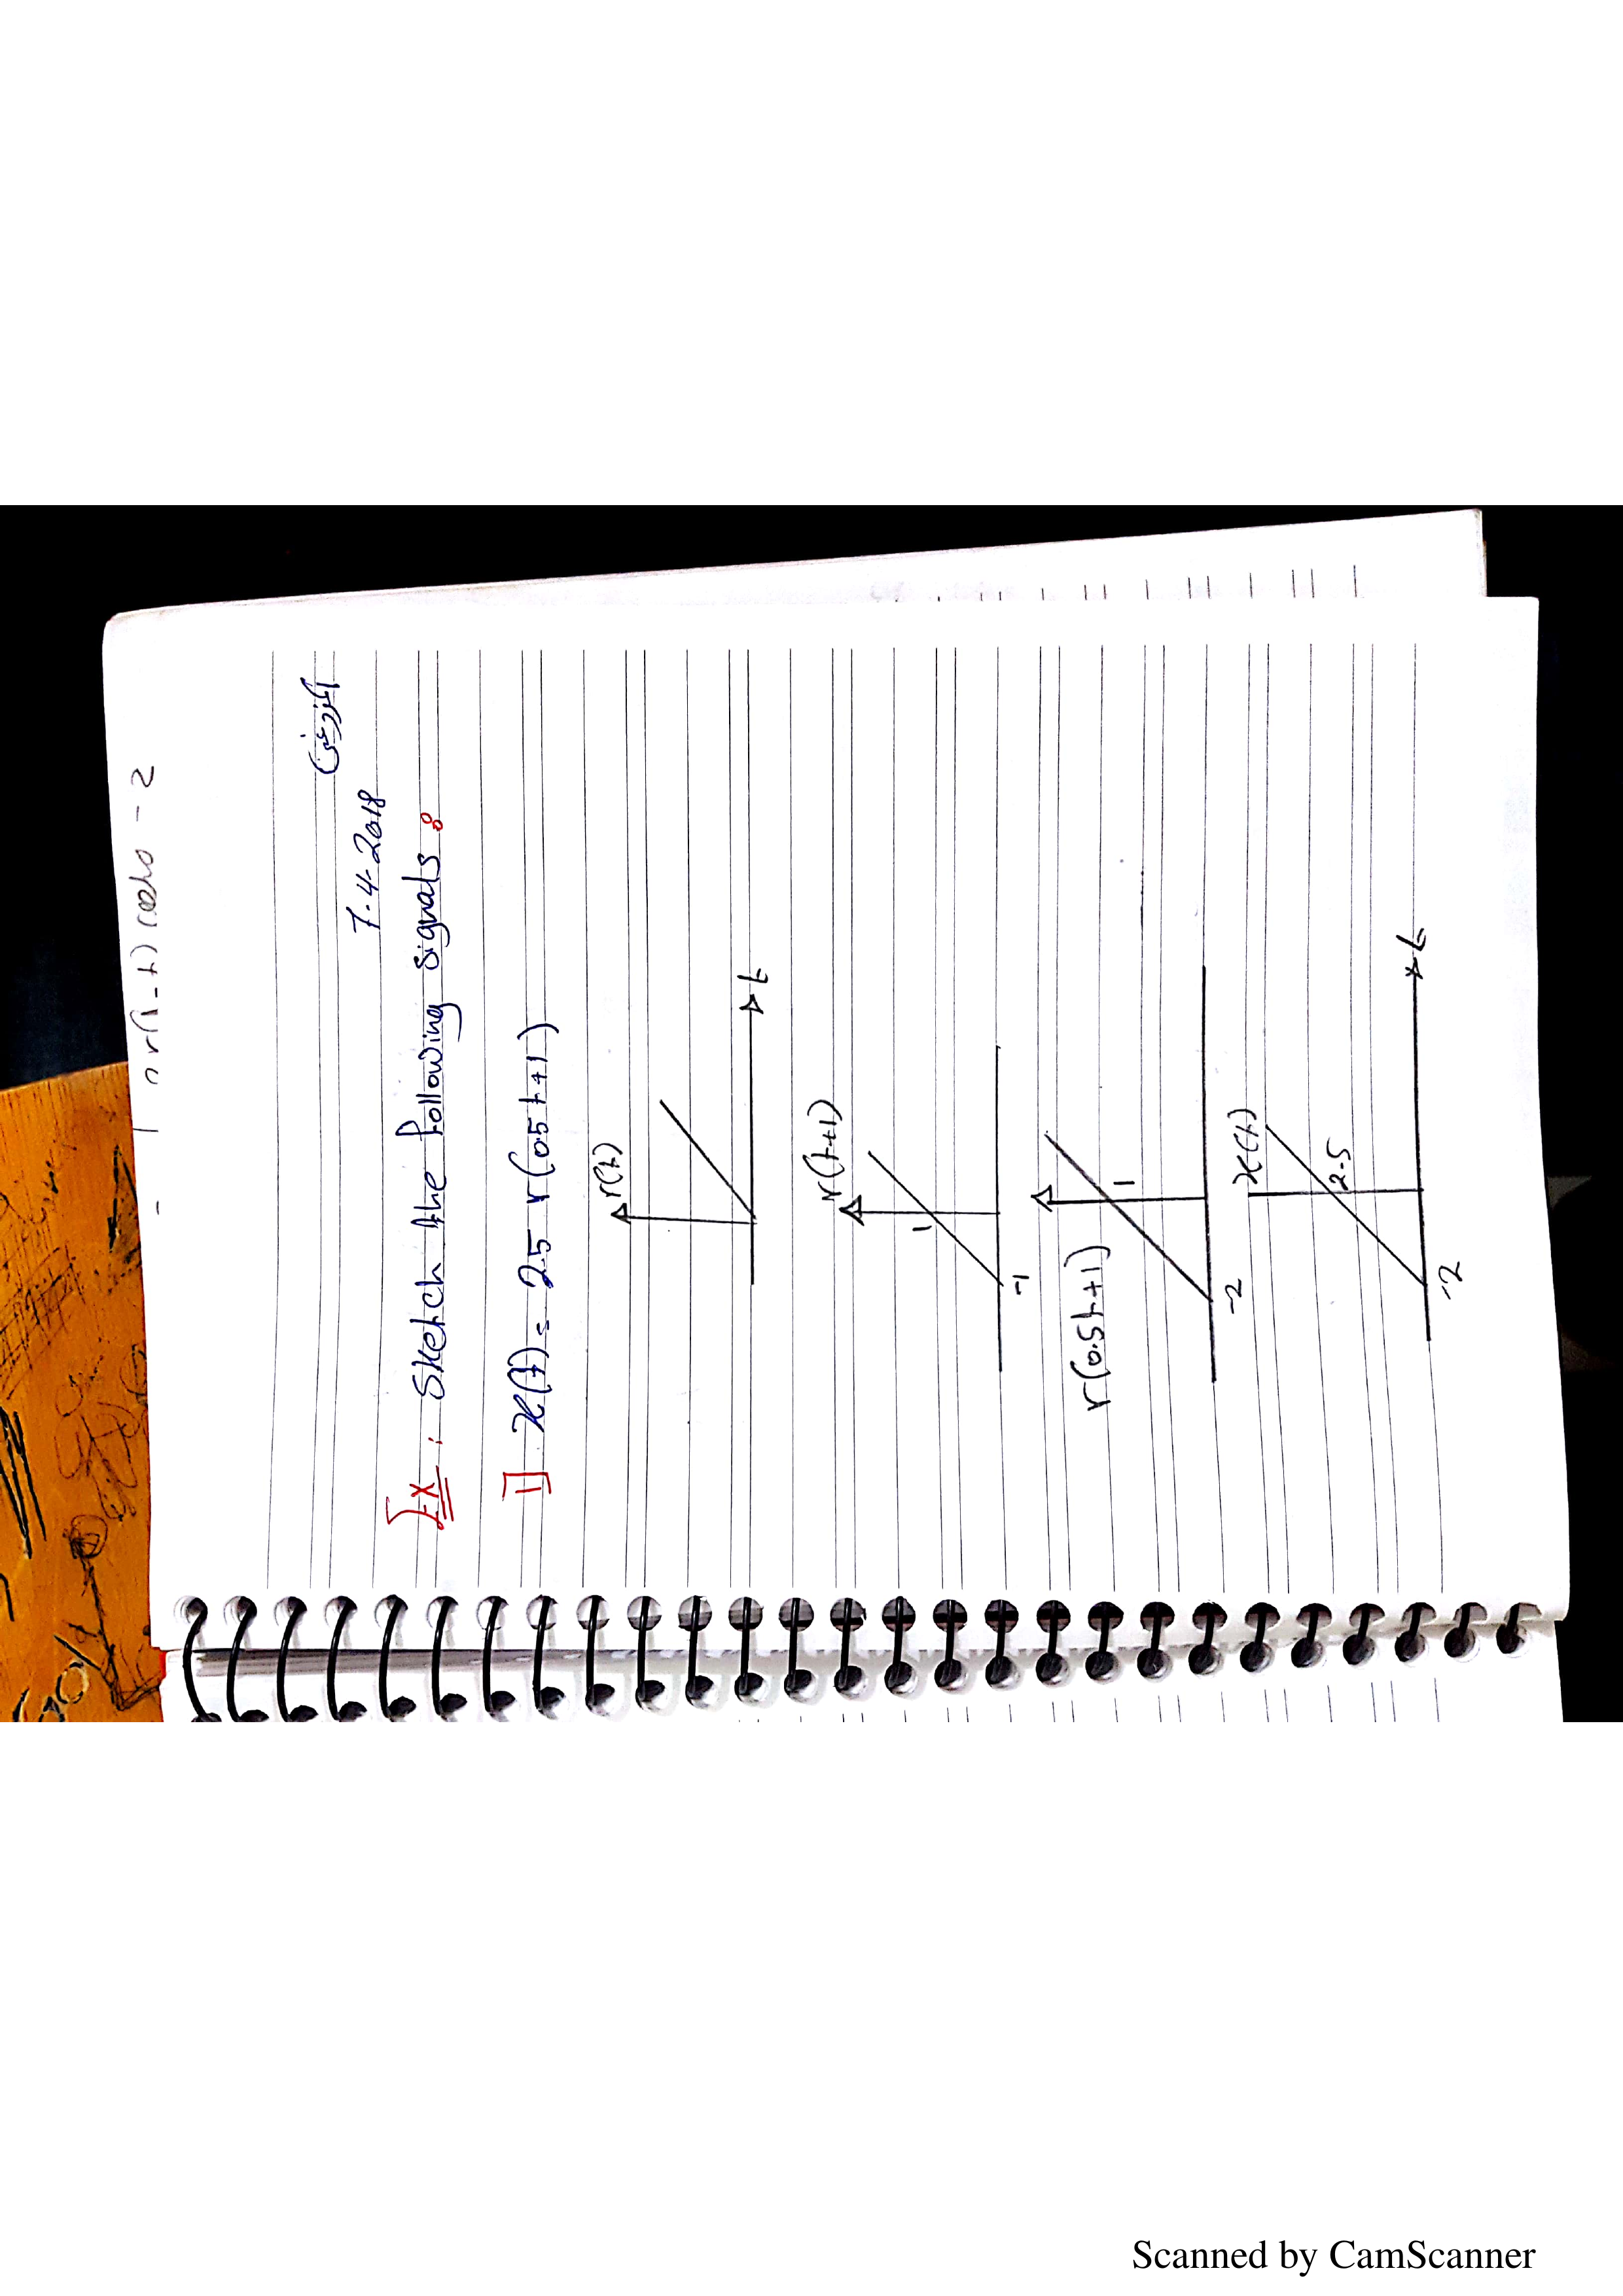 7-4-2018
Ex: Sketch the following signals:
1 x(t) = 2.5 r(0.5t+1)
r(t)
t
r(t+1)
1
-1
r(0.5t+1)
1
-2
x(t)
2.5
-2
t
Scanned by CamScanner